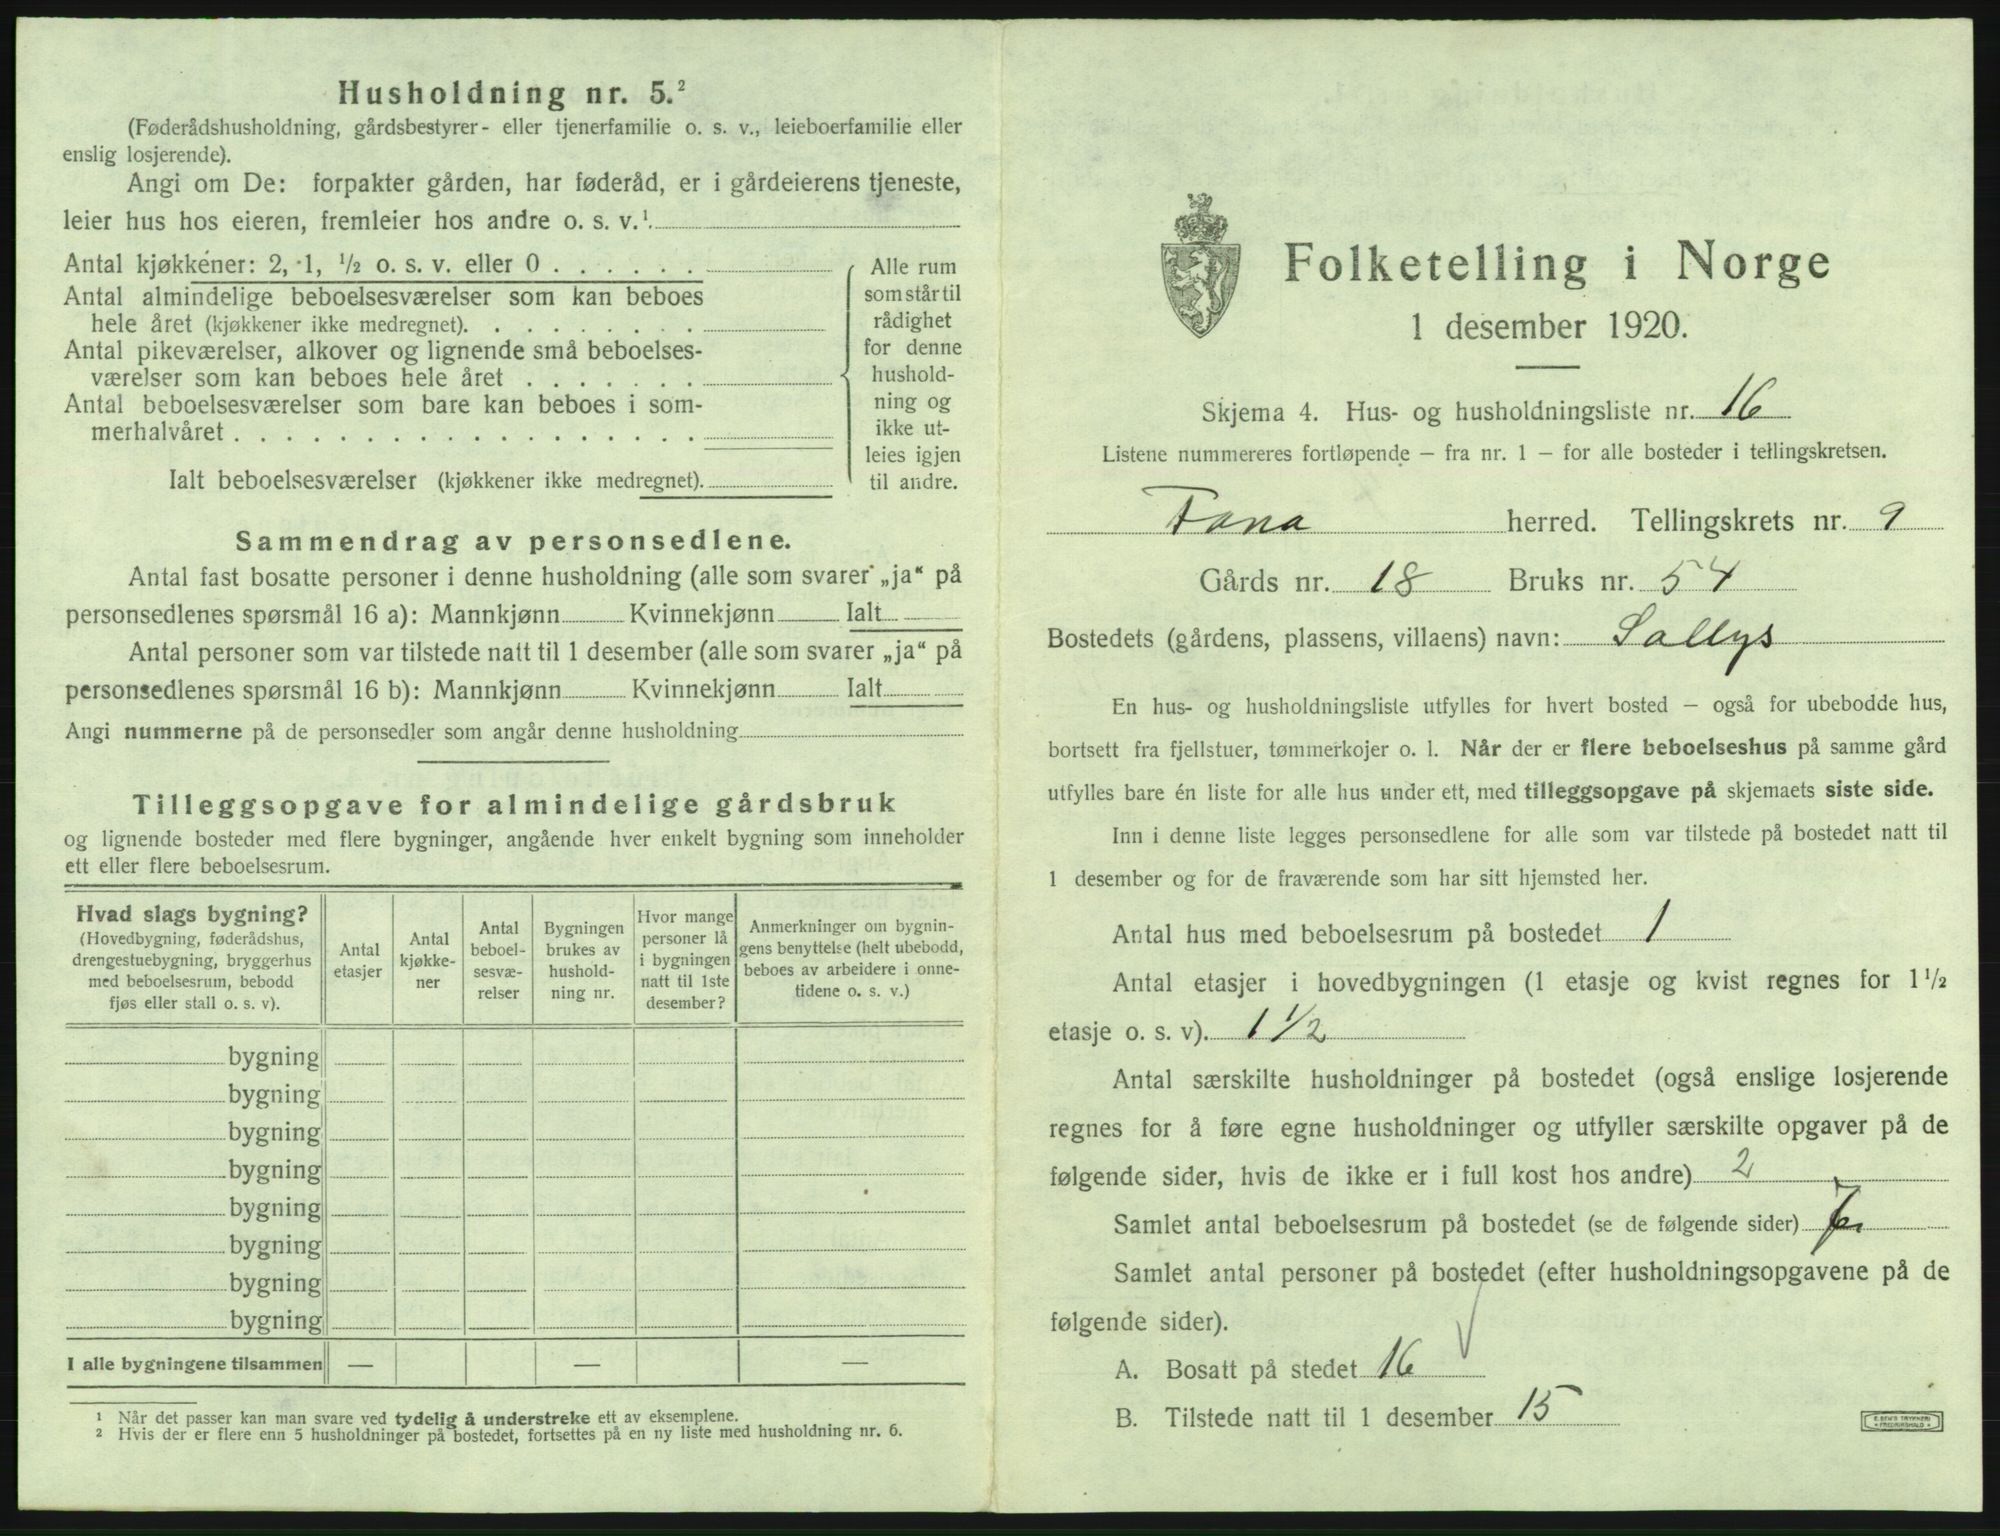 Husholdning nr. 5.²
(Føderådshusholdning, gårdsbestyrer- eller tjenerfamilie o. s. v., leieboerfamilie eller
enslig losjerende).
Angi om De: forpakter gården, har føderåd, er i gårdeierens tjeneste,
leier hus hos eieren, fremleier hos andre o. s. v.¹
Antal kjøkkener: 2, 1, ½ o. s. v. eller 0 . . . . . .
Antal almindelige beboelsesværelser som kan beboes
hele året (kjøkkener ikke medregnet). . . . . . . . .
Antal pikeværelser, alkover og lignende små beboelses-
værelser som kan beboes hele året . . . . . . .
Antal beboelsesværelser som bare kan beboes i som-
merhalvåret . . . . . . . . . . . . . . . . .
Ialt beboelsesværelser (kjøkkener ikke medregnet).
Alle rum
som står til
rådighet
for denne
hushold-
ning og
ikke ut-
leies igjen
til andre.
Sammendrag av personsedlene.
Antal fast bosatte personer i denne husholdning (alle som svarer „ja“ på
personsedlenes spørsmål 16 a): Mannkjønn Kvinnekjønn Ialt
Antal personer som var tilstede natt til 1 desember (alle som svarer „ja“ på
personsedlenes spørsmål 16 b): Mannkjønn Kvinnekjønn Ialt
Angi nummerne på de personsedler som angår denne husholdning
Tilleggsopgave for almindelige gårdsbruk
og lignende bosteder med flere bygninger, angående hver enkelt bygning som inneholder
ett eller flere beboelsesrum.
Hvad slags bygning?
(Hovedbygning, føderådshus,
drengestuebygning, bryggerhus
med beboelsesrum, bebodd
fjøs eller stall o. s. v).
Antal
etasjer
Antal
kjøkke-
ner
Antal
beboel-
sesvæ-
relser
Bygningen
brukes av
hushold-
ning nr.
Hvor mange
personer lå
i bygningen
natt til 1ste
desember?
Anmerkninger om bygnin-
gens benyttelse (helt ubebodd,
beboes av arbeidere i onne-
tidene o. s. v.)
bygning
bygning
bygning
bygning
bygning
bygning
bygning
bygning
I alle bygningene tilsammen — — —
¹ Når det passer kan man svare ved tydelig å understreke ett av eksemplene.
² Hvis der er flere enn 5 husholdninger på bostedet, fortsettes på en ny liste med husholdning nr. 6.
Folketelling i Norge
1 desember 1920.
Skjema 4. Hus- og husholdningsliste nr. 16
Listene nummereres fortløpende – fra nr. 1 – for alle bosteder i tellingskretsen.
Fana herred. Tellingskrets nr. 9
Gårds nr. 18 Bruks nr. 54
Bostedets (gårdens, plassens, villaens) navn: Sollys
En hus- og husholdningsliste utfylles for hvert bosted – også for ubebodde hus,
bortsett fra fjellstuer, tømmerkojer o. l. Når der er flere beboelseshus på samme gård
utfylles bare én liste for alle hus under ett, med tilleggsopgave på skjemaets siste side.
Inn i denne liste legges personsedlene for alle som var tilstede på bostedet natt til
1 desember og for de fraværende som har sitt hjemsted her.
Antal hus med beboelsesrum på bostedet 1
Antal etasjer i hovedbygningen (1 etasje og kvist regnes for 1½
etasje o. s. v). 1½
Antal særskilte husholdninger på bostedet (også enslige losjerende
regnes for å føre egne husholdninger og utfyller særskilte opgaver på de
følgende sider, hvis de ikke er i full kost hos andre) 2
Samlet antal beboelsesrum på bostedet (se de følgende sider)
Samlet antal personer på bostedet (efter husholdningsopgavene på de
følgende sider).
A. Bosatt på stedet 16
B. Tilstede natt til 1 desember 15